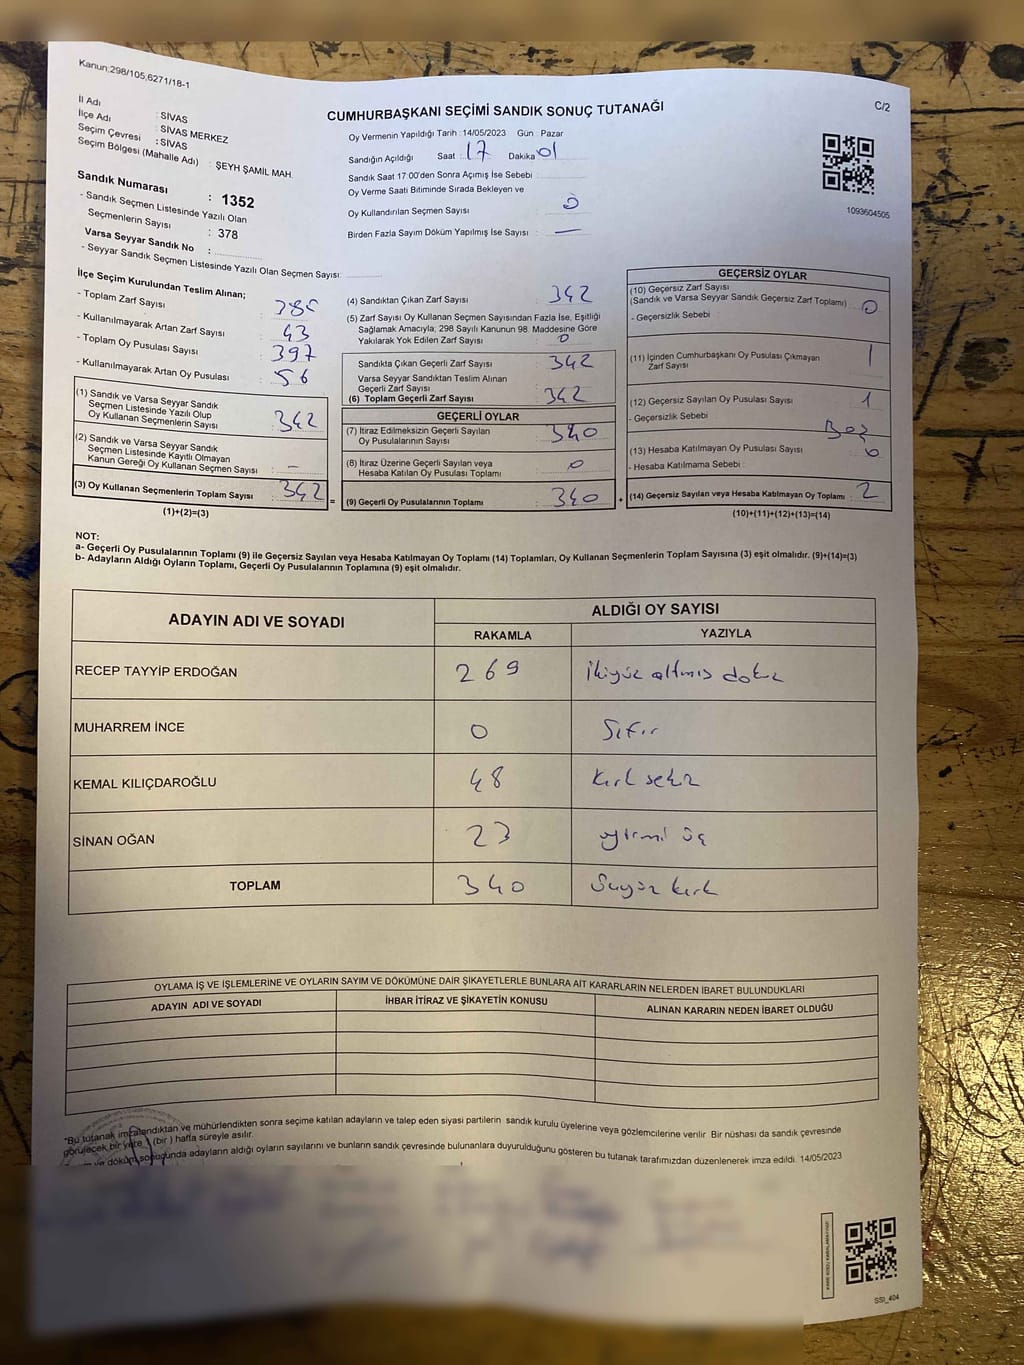 Kanun:298/105,6271/18-1
C/2
CUMHURBAŞKANI SEÇİMİ SANDIK SONUÇ TUTANAĞI
İl Adı : SİVAS
İlçe Adı : SİVAS MERKEZ
Seçim Çevresi : SİVAS
Seçim Bölgesi (Mahalle Adı) : ŞEYH ŞAMİL MAH.
Sandık Numarası : 1352
- Sandık Seçmen Listesinde Yazılı Olan
Seçmenlerin Sayısı : 378
Varsa Seyyar Sandık No :
- Seyyar Sandık Seçmen Listesinde Yazılı Olan Seçmen Sayısı:
Oy Vermenin Yapıldığı Tarih : 14/05/2023 Gün : Pazar
Sandığın Açıldığı Saat : 17 Dakika 01
Sandık Saat 17:00'den Sonra Açımış İse Sebebi :
Oy Verme Saati Bitiminde Sırada Bekleyen ve
Oy Kullandırılan Seçmen Sayısı : 0
Birden Fazla Sayım Döküm Yapılmış İse Sayısı : —
1093604505
İlçe Seçim Kurulundan Teslim Alınan;
- Toplam Zarf Sayısı :
- Kullanılmayarak Artan Zarf Sayısı : 43
- Toplam Oy Pusulası Sayısı : 397
- Kullanılmayarak Artan Oy Pusulası : 56
(1) Sandık ve Varsa Seyyar Sandık
Seçmen Listesinde Yazılı Olup
Oy Kullanan Seçmenlerin Sayısı : 342
(2) Sandık ve Varsa Seyyar Sandık
Seçmen Listesinde Kayıtlı Olmayan
Kanun Gereği Oy Kullanan Seçmen Sayısı : –
(3) Oy Kullanan Seçmenlerin Toplam Sayısı : 342
(1)+(2)=(3)
=
(4) Sandıktan Çıkan Zarf Sayısı : 342
(5) Zarf Sayısı Oy Kullanan Seçmen Sayısından Fazla İse, Eşitliği
Sağlamak Amacıyla, 298 Sayılı Kanunun 98. Maddesine Göre
Yakılarak Yok Edilen Zarf Sayısı : 0
Sandıkta Çıkan Geçerli Zarf Sayısı : 342
Varsa Seyyar Sandıktan Teslim Alınan
Geçerli Zarf Sayısı :
(6) Toplam Geçerli Zarf Sayısı : 342
GEÇERLİ OYLAR
(7) İtiraz Edilmeksizin Geçerli Sayılan
Oy Pusulalarının Sayısı : 340
(8) İtiraz Üzerine Geçerli Sayılan veya
Hesaba Katılan Oy Pusulası Toplamı : 0
(9) Geçerli Oy Pusulalarının Toplamı : 340
+
GEÇERSİZ OYLAR
(10) Geçersiz Zarf Sayısı
(Sandık ve Varsa Seyyar Sandık Geçersiz Zarf Toplamı) : 0
- Geçersizlik Sebebi :
(11) İçinden Cumhurbaşkanı Oy Pusulası Çıkmayan
Zarf Sayısı : 1
(12) Geçersiz Sayılan Oy Pusulası Sayısı : 1
- Geçersizlik Sebebi :
(13) Hesaba Katılmayan Oy Pusulası Sayısı : 0
- Hesaba Katılmama Sebebi :
(14) Geçersiz Sayılan veya Hesaba Katılmayan Oy Toplamı : 2
(10)+(11)+(12)+(13)=(14)
NOT:
a- Geçerli Oy Pusulalarının Toplamı (9) ile Geçersiz Sayılan veya Hesaba Katılmayan Oy Toplamı (14) Toplamları, Oy Kullanan Seçmenlerin Toplam Sayısına (3) eşit olmalıdır. (9)+(14)=(3)
b- Adayların Aldığı Oyların Toplamı, Geçerli Oy Pusulalarının Toplamına (9) eşit olmalıdır.
ADAYIN ADI VE SOYADI
ALDIĞI OY SAYISI
RAKAMLA YAZIYLA
RECEP TAYYİP ERDOĞAN 269 İkiyüz altmış dokuz
MUHARREM İNCE 0 Sıfır
KEMAL KILIÇDAROĞLU 48 Kırk sekiz
SİNAN OĞAN 23 yirmi üç
TOPLAM 340 Üçyüz kırk
OYLAMA İŞ VE İŞLEMLERİNE VE OYLARIN SAYIM VE DÖKÜMÜNE DAİR ŞİKAYETLERLE BUNLARA AİT KARARLARIN NELERDEN İBARET BULUNDUKLARI
ADAYIN ADI VE SOYADI İHBAR İTİRAZ VE ŞİKAYETİN KONUSU ALINAN KARARIN NEDEN İBARET OLDUĞU
"Bu tutanak imzalandıktan ve mühürlendikten sonra seçime katılan adayların ve talep eden siyasi partilerin sandık kurulu üyelerine veya gözlemcilerine verilir. Bir nüshası da sandık çevresinde
görülecek bir yere 1 (bir) hafta süreyle asılır.
ve döküm sonucunda adayların aldığı oyların sayılarını ve bunların sandık çevresinde bulunanlara duyurulduğunu gösteren bu tutanak tarafımızdan düzenlenerek imza edildi. 14/05/2023
SSI_404